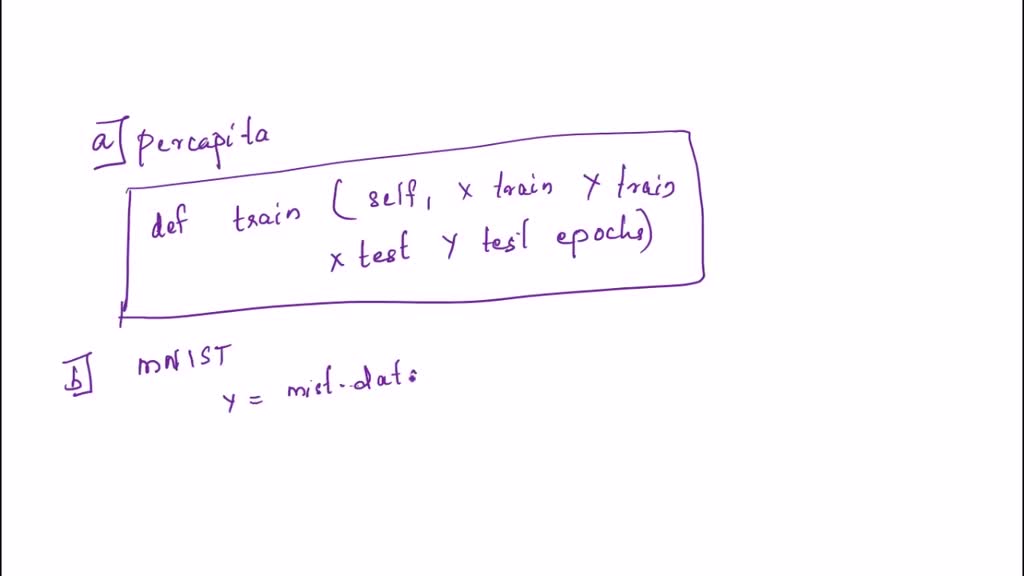 a] percapita
def train (self, x train y train
x test y test epochs)
b] mNIST
y = mist.dat